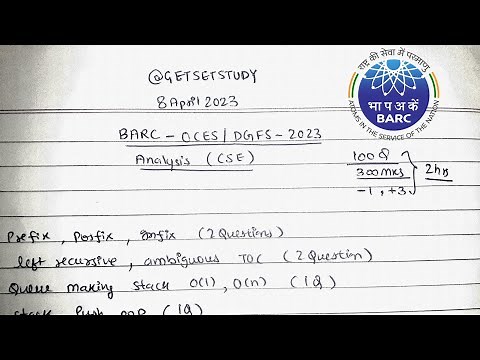 @GETSETSTUDY
8 April 2023
BARC - OCES/DGFS - 2023
Analysis (CSE)
राष्ट्र की सेवा में परमाणु
भा प अ कें
BARC
ATOMS IN THE SERVICE OF THE NATION
100 Q
300 Mks
-1, +3
2 hr
Prefix, Postfix, Infix (2 Questions)
left recursive, ambiguous TOC (2 Question)
Queue making stack O(1), O(n) (1Q)
stack Push POP (1Q)